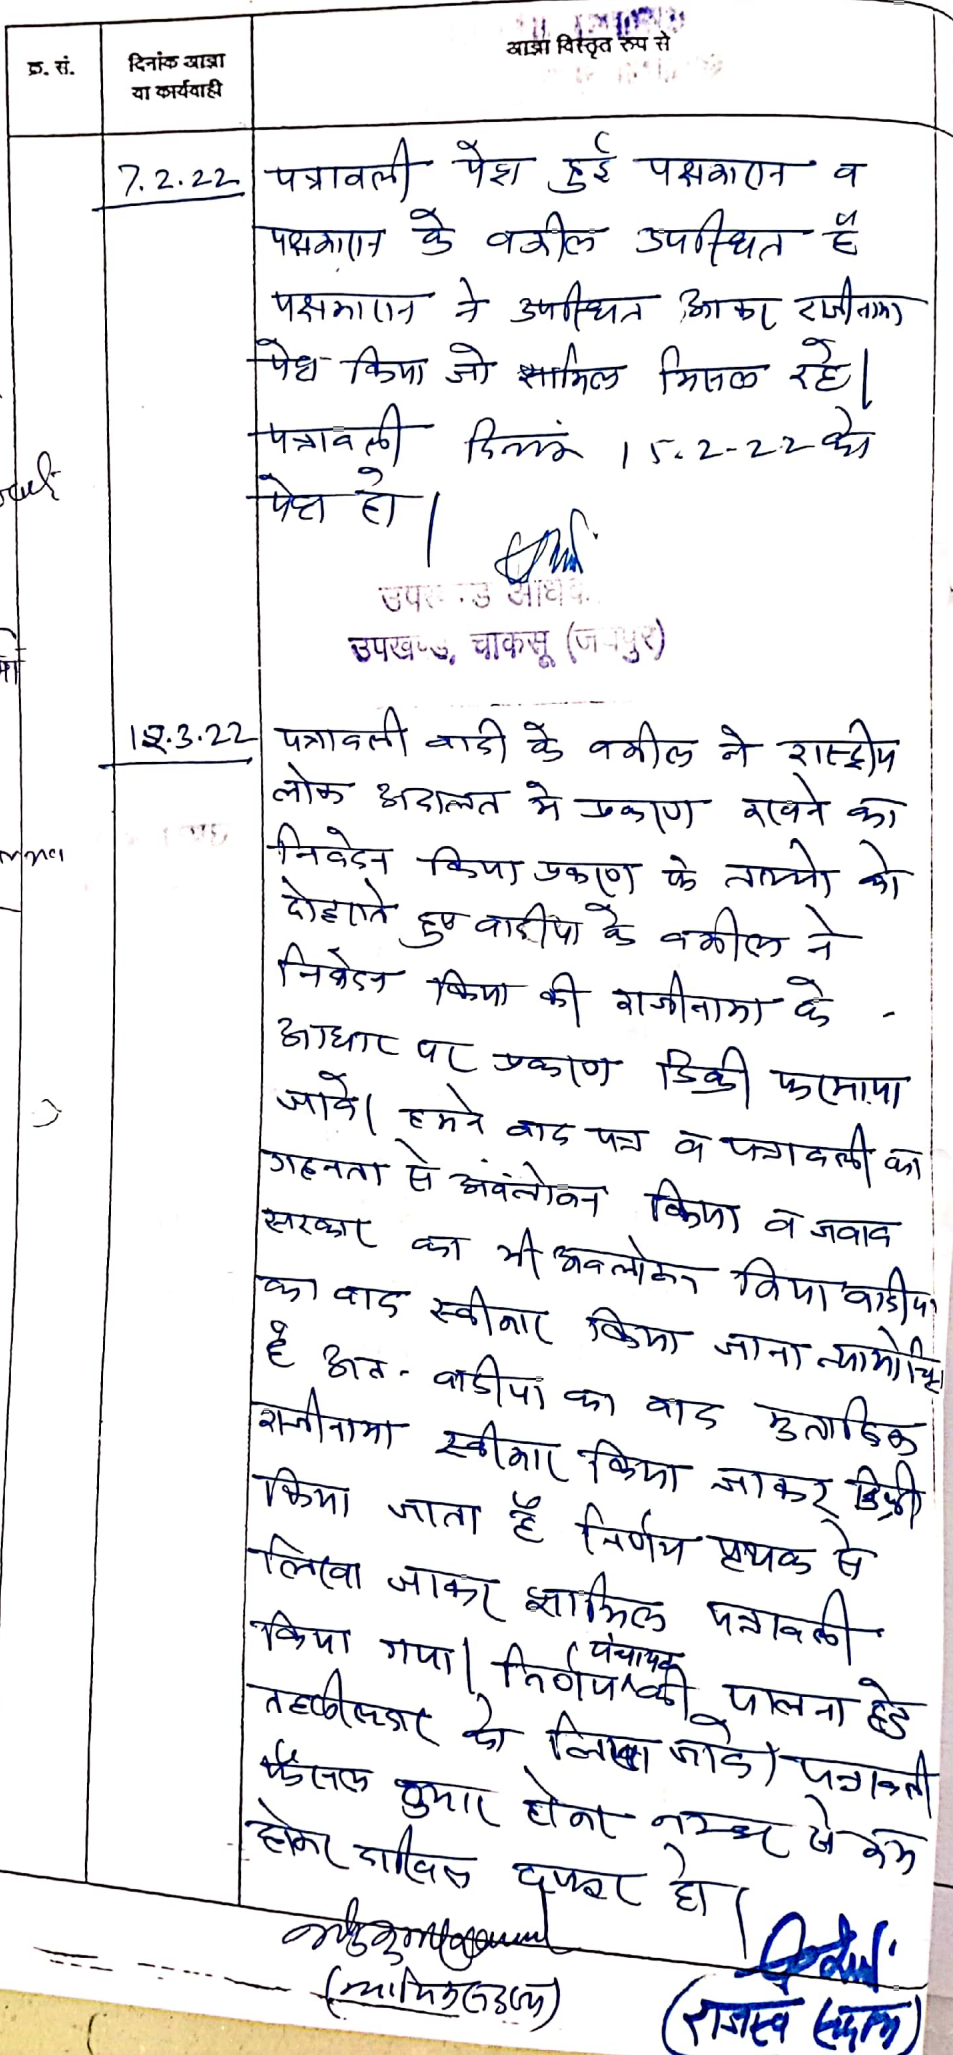 क्र. सं.
दिनांक आज्ञा
या कार्यवाही
आज्ञा विस्तृत रुप से
7.2.22
पत्रावली पेश हुई पक्षकारान व
पक्षकारान के वकील उपस्थित है
पक्षकारान ने उपस्थित आकर राजीनामा
पेश किया जो शामिल मिसल रहे।
पत्रावली दिनांक 15.2-22 को
पेश हो।
उपखण्ड, चाकसू (जयपुर)
12.3.22
पत्रावली वादी के वकील ने राष्ट्रीय
लोक अदालत मे प्रकरण रखने का
निवेदन किया प्रकरण के तथ्यो को
दोहराते हुए वादीया के वकील ने
निवेदन किया की राजीनामा के
आधार पर प्रकरण डिक्री फरमाया
जावे। हमने वाद पत्र व पत्रावली का
गहनता से अवंलोकन किया व जवाब
सरकार का भी अवलोकन किया वादीया
का वाद स्वीकार किया जाना न्यायोचित
है अत. वादीया का वाद मुताबिक
राजीनामा स्वीकार किया जाकर डिक्री
किया जाता है निर्णय पृथक से
लिखा जाकर शामिल पत्रावली
किया गया। निर्णय की पालना हेतु
तहसीलदार को लिखा जावे। पत्रावली
फैसल शुमार होकर नम्बर से कम
होकर दाखिल दफ्तर हो।
(राजस्व सदस्य)